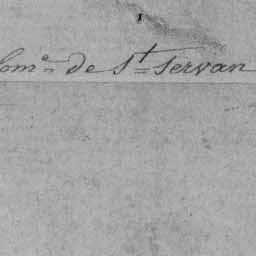 Com.ne de St Servan